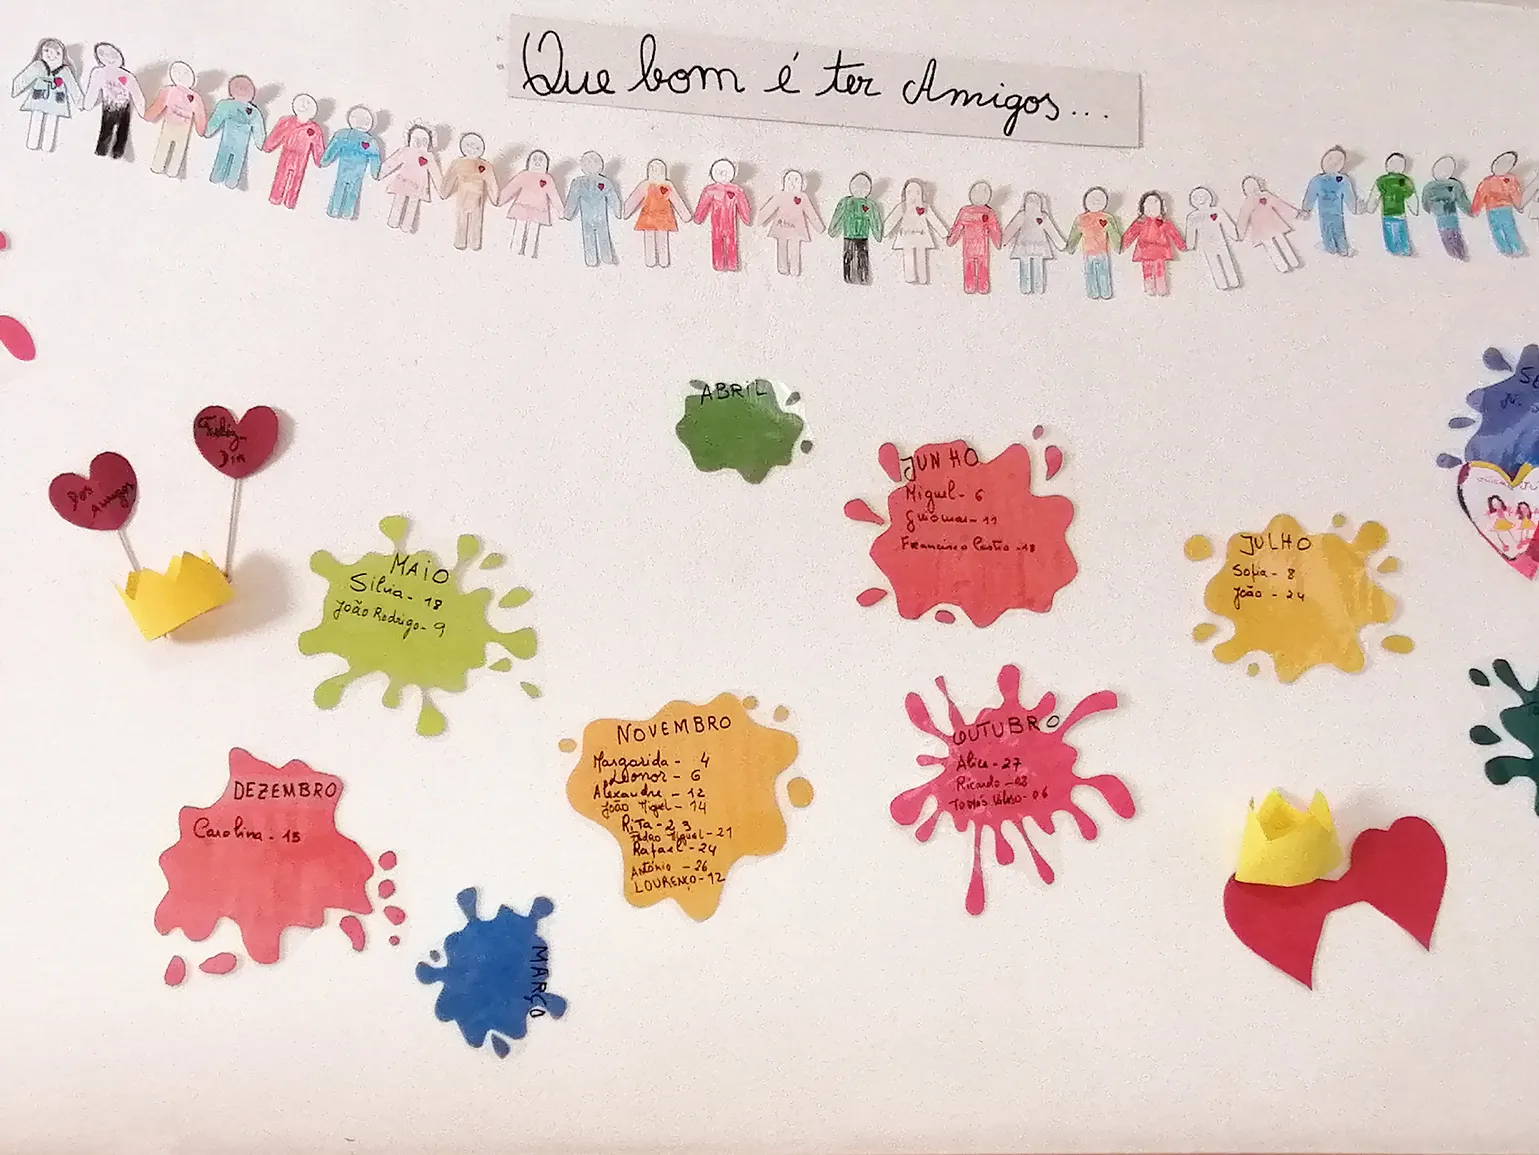 Que bom é ter Amigos...
ABRIL
JUNHO
Miguel - 6
Guiomar - 11
Francisco Castro - 18
JULHO
Sofia - 8
João - 24
Feliz
Dia
dos
Amigos
MAIO
Silvia - 18
João Rodrigo - 9
NOVEMBRO
Margarida - 4
Leonor - 6
Alexandre - 12
João Miguel - 14
RiTa - 23
Pedro Miguel - 21
Rafael - 24
António - 26
LOURENÇO - 12
OUTUBRO
Alice - 27
Ricardo
Tomás
DEZEMBRO
Carolina - 15
MARÇO